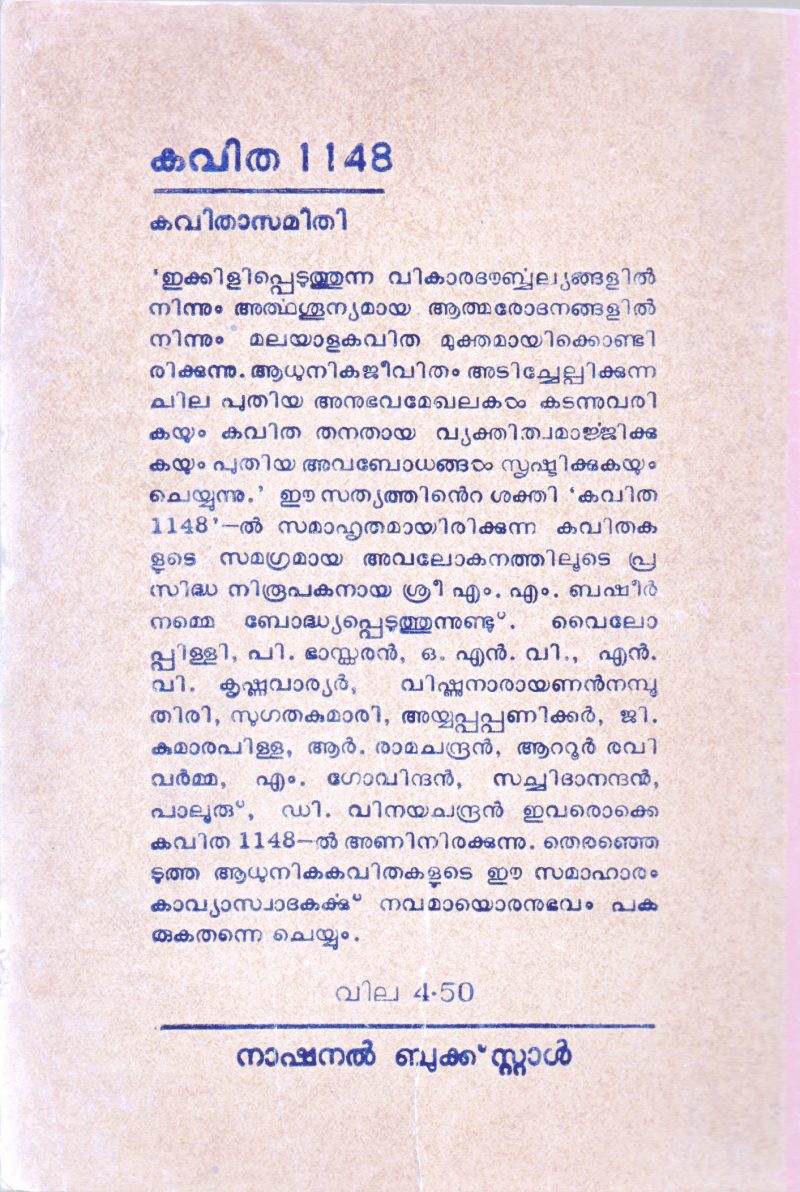 കവിത 1148
കവിതാസമിതി
'ഇക്കിളിപ്പെടുത്തുന്ന വികാരദൗർബ്ബല്യങ്ങളിൽ
നിന്നും അർത്ഥശൂന്യമായ ആത്മരോദനങ്ങളിൽ
നിന്നും മലയാളകവിത മുക്തമായിക്കൊണ്ടി
രിക്കുന്നു. ആധുനികജീവിതം അടിച്ചേല്പിക്കുന്ന
ചില പുതിയ അനുഭവമേഖലകൾ കടന്നുവരി
കയും കവിത തനതായ വ്യക്തിത്വമാർജ്ജിക്കു
കയും പുതിയ അവബോധങ്ങൾ സൃഷ്ടിക്കുകയും
ചെയ്യുന്നു.' ഈ സത്യത്തിൻെറ ശക്തി 'കവിത
1148'—ൽ സമാഹൃതമായിരിക്കുന്ന കവിതക
ളുടെ സമഗ്രമായ അവലോകനത്തിലൂടെ പ്ര
സിദ്ധ നിരൂപകനായ ശ്രീ എം. എം. ബഷീർ
നമ്മെ ബോദ്ധ്യപ്പെടുത്തുന്നുണ്ടു്. വൈലോ
പ്പിള്ളി, പി. ഭാസ്ക്കരൻ, ഒ. എൻ. വി., എൻ.
വി. കൃഷ്ണവാര്യർ, വിഷ്ണുനാരായണൻനമ്പൂ
തിരി, സുഗതകുമാരി, അയ്യപ്പപ്പണിക്കർ, ജി.
കുമാരപിള്ള, ആർ. രാമചന്ദ്രൻ, ആററൂർ രവി
വർമ്മ, എം. ഗോവിന്ദൻ, സച്ചിദാനന്ദൻ,
പാലൂരു്, ഡി. വിനയചന്ദ്രൻ ഇവരൊക്കെ
കവിത 1148—ൽ അണിനിരക്കുന്നു. തെരഞ്ഞെ
ടുത്ത ആധുനികകവിതകളുടെ ഈ സമാഹാരം
കാവ്യാസ്വാദകർക്കു് നവമായൊരനുഭവം പക
രുകതന്നെ ചെയ്യും.
വില 4·50
നാഷനൽ ബുക്ക് സ്റ്റാൾ